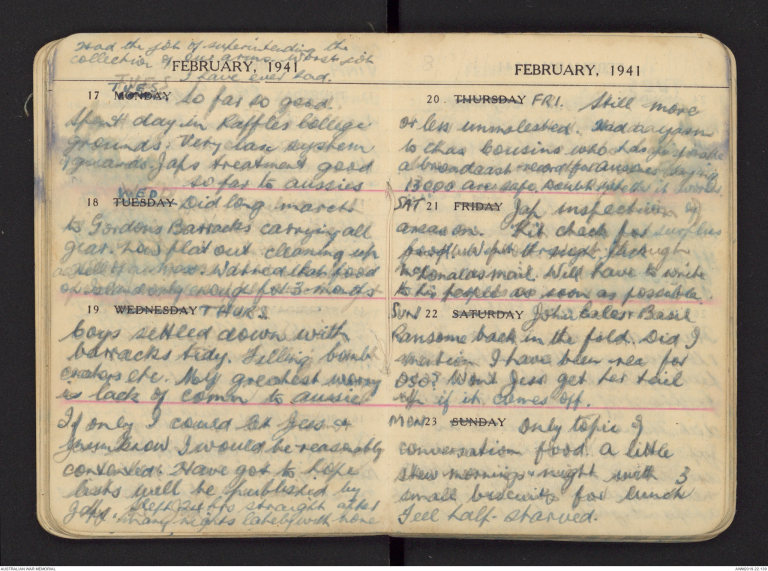 Had the job of superintending the
collection of our arms. Worst job
I have ever had.
FEBRUARY, 1941
TUES
17 MONDAY So far so good.
Spent day in Raffles College
grounds. Very close system
guards. Japs treatment good
so far to aussies
WED
18 TUESDAY Did long march
to Gordons Barracks carrying all
gear. Now flat out cleaning up
Warned that food
only for 3 months
19 WEDNESDAY THURS
boys settled down with
barracks tidy. Filling bomb
craters etc. My greatest worry
is lack of comn to aussie
If only I could let Jess &
know I would be reasonably
contented. Have got to hope
lists will be published by
Japs. Slept 2 nights straight after
many nights lately with none
FEBRUARY, 1941
20 THURSDAY FRI. Still more
or less unmolested. Had a yarn
to Chas Cousins who has
a broadcast record for aussies saying
13000 are safe, doubt whether it works
SAT 21 FRIDAY Jap inspection of
area on. Kit check for surplus
food through
mail. Will have to write
to his people as soon as possible.
SUN 22 SATURDAY John Eales & Basil
Ransome back in the fold. Did I
mention I have been rec for
DSO? Wont Jess get her tail
up if it comes off.
MON 23 SUNDAY Only topic of
conversation food. A little
stew mornings & night with 3
small biscuits for lunch
Feel half-starved.
AUSTRALIAN WAR MEMORIAL